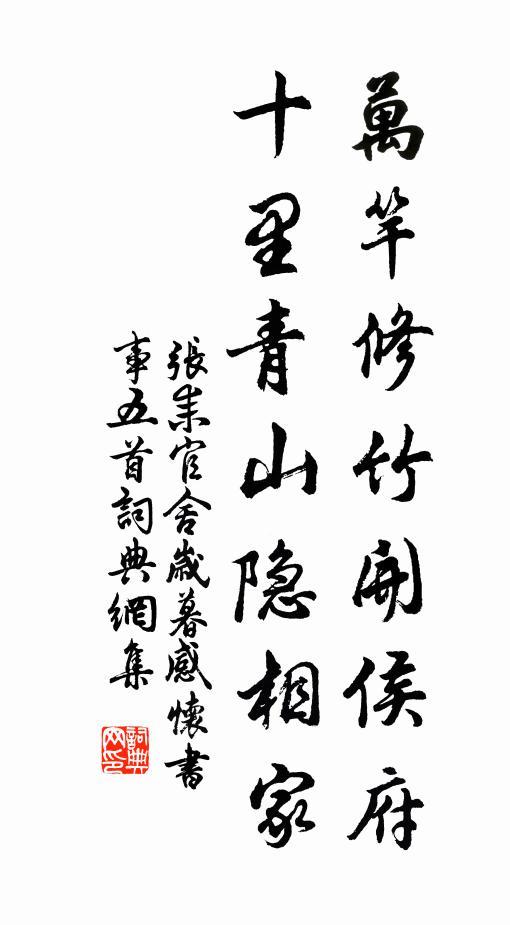 萬竿修竹開侯府
十里青山隐相家
張耒官舍歲暮感懷書
事五首詞典網集
詞典網印